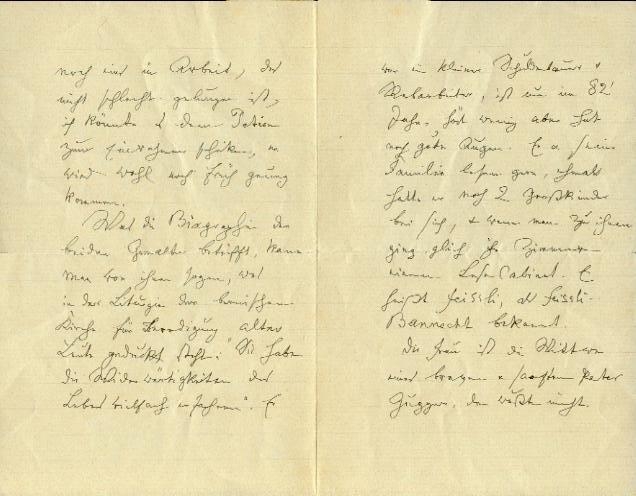 noch eins in Arbeit, das
nicht schlecht gelungen ist,
ich könnte d dann
zum Einrahmen schicken, es
wird wohl noch früh genug
kommen.
Was die Biographie der
beiden Gemalten betrifft, kann
man von ihnen sagen, was
in der Liturgie der bernischen
Kirche für Beerdigung alter
Leute gedruckt steht: "Sie haben
die Widerwärtigkeiten des
Lebens vielfach erfahren". Er
war ein kleiner Schuldenbauer &
, ist nun im 82
Jahr, hört wenig aber hat
noch gute Augen. Er u. seine
Familie lesen gern, ehmals
hatte er noch 2 Großkinder
bei sich, & wenn man zu ihnen
ging glich ihr Zimmer
einem Lese Cabinet. Er
heißt Feissli, als Feissli-
Bannecht bekannt.
Die Frau ist die Wittwe
eines braven & sanften Peter
Gugger, den weißt nicht.